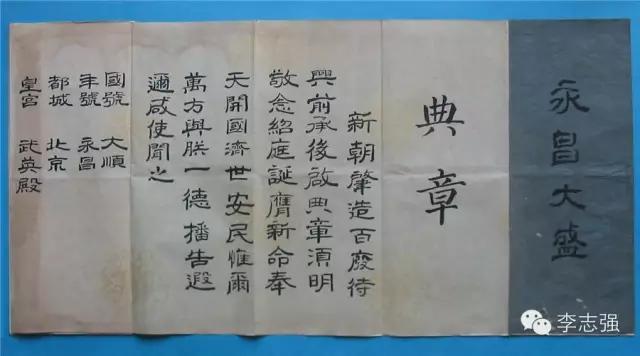 永昌大盛
典章
新朝肇造百廢待
興前承後啟典章須明
敬念紹庭誕膺新命奉
天開國濟世安民惟爾
萬方與朕一德播告遐
邇咸使聞之
國號 大順
年號 永昌
都城 北京
皇宮 武英殿
李志强